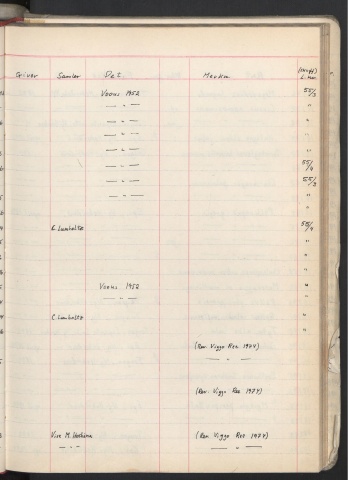 Giver Samler Det. Merkn. (Skuff) L. nr.
Voous 1952 55/3
— " — "
— " — "
— " — "
— " — "
— " — 55/4
— " — 55/3
— " — "
"
C. Lumholtz 55/4
"
"
"
Voous 1952 "
— " — "
C. Lumholtz "
"
(Rev. Viggo Ree 1974)
— " —
(Rev. Viggo Ree 1974)
Vise M. (Rev. Viggo Ree 1974)
— " — — " —